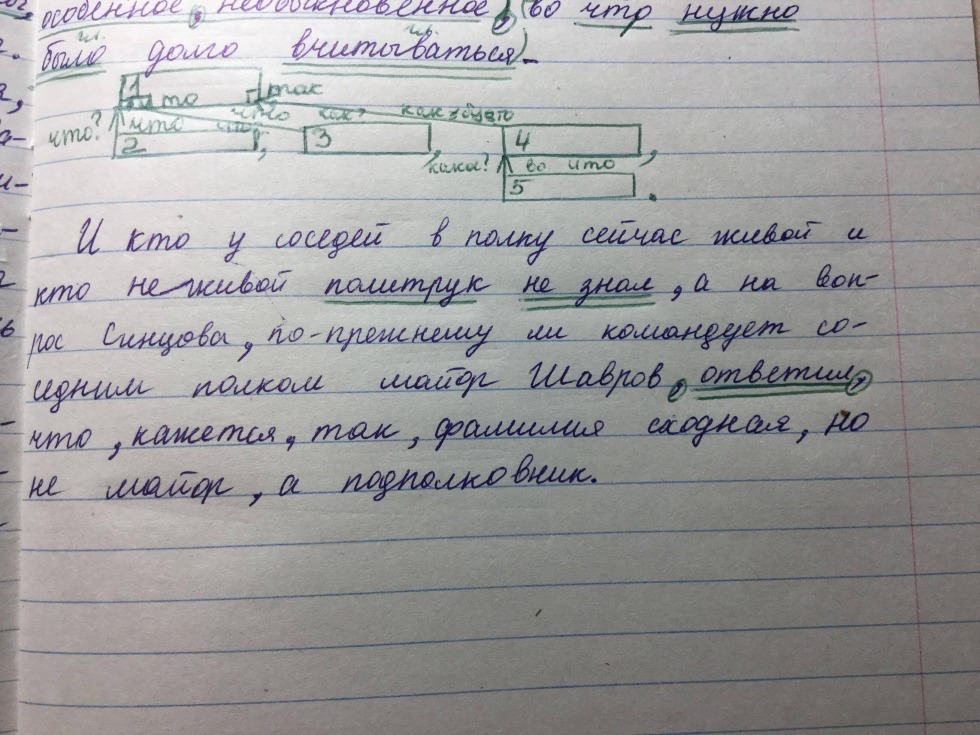 особенное, необыкновенное, (во что нужно
гл. гл.
было долго вчитываться).
1 что так
что? что что как, как будто
2, 3, 4,
какое? во что
5.
И кто у соседей в полку сейчас живой и
кто не живой политрук не знал, а на воп-
рос Синцова, по-прежнему ли командует со-
седним полком майор Шавров, ответил,
что, кажется, так, фамилия сходная, но
не майор, а подполковник.